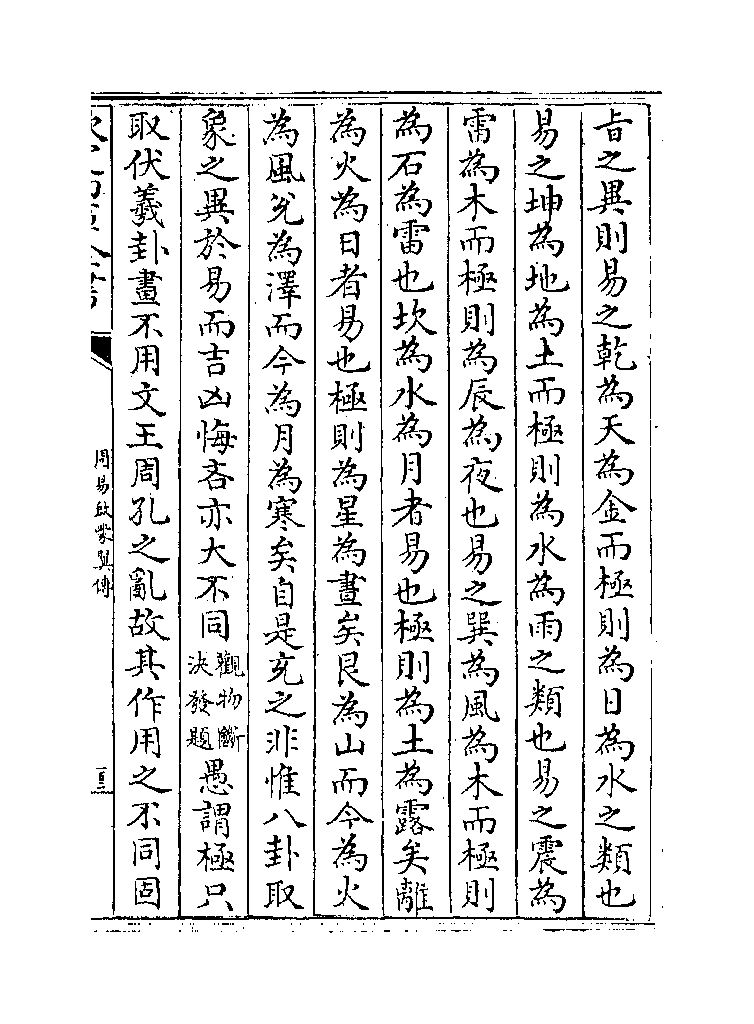 旨之異則易之乾為天為金而極則為日為水之類也
易之坤為地為土而極則為水為雨之類也易之震為
雷為木而極則為辰為夜也易之巽為風為木而極則
為石為雷也坎為水為月者易也極則為土為露矣離
為火為日者易也極則為星為晝矣艮為山而今為火
為風兊為澤而今為月為寒矣自是充之非惟八卦取
象之異於易而吉凶悔吝亦大不同觀物斷
決發題愚謂極只
取伏羲卦畫不用文王周孔之亂故其作用之不同固
周易啟蒙翼傳